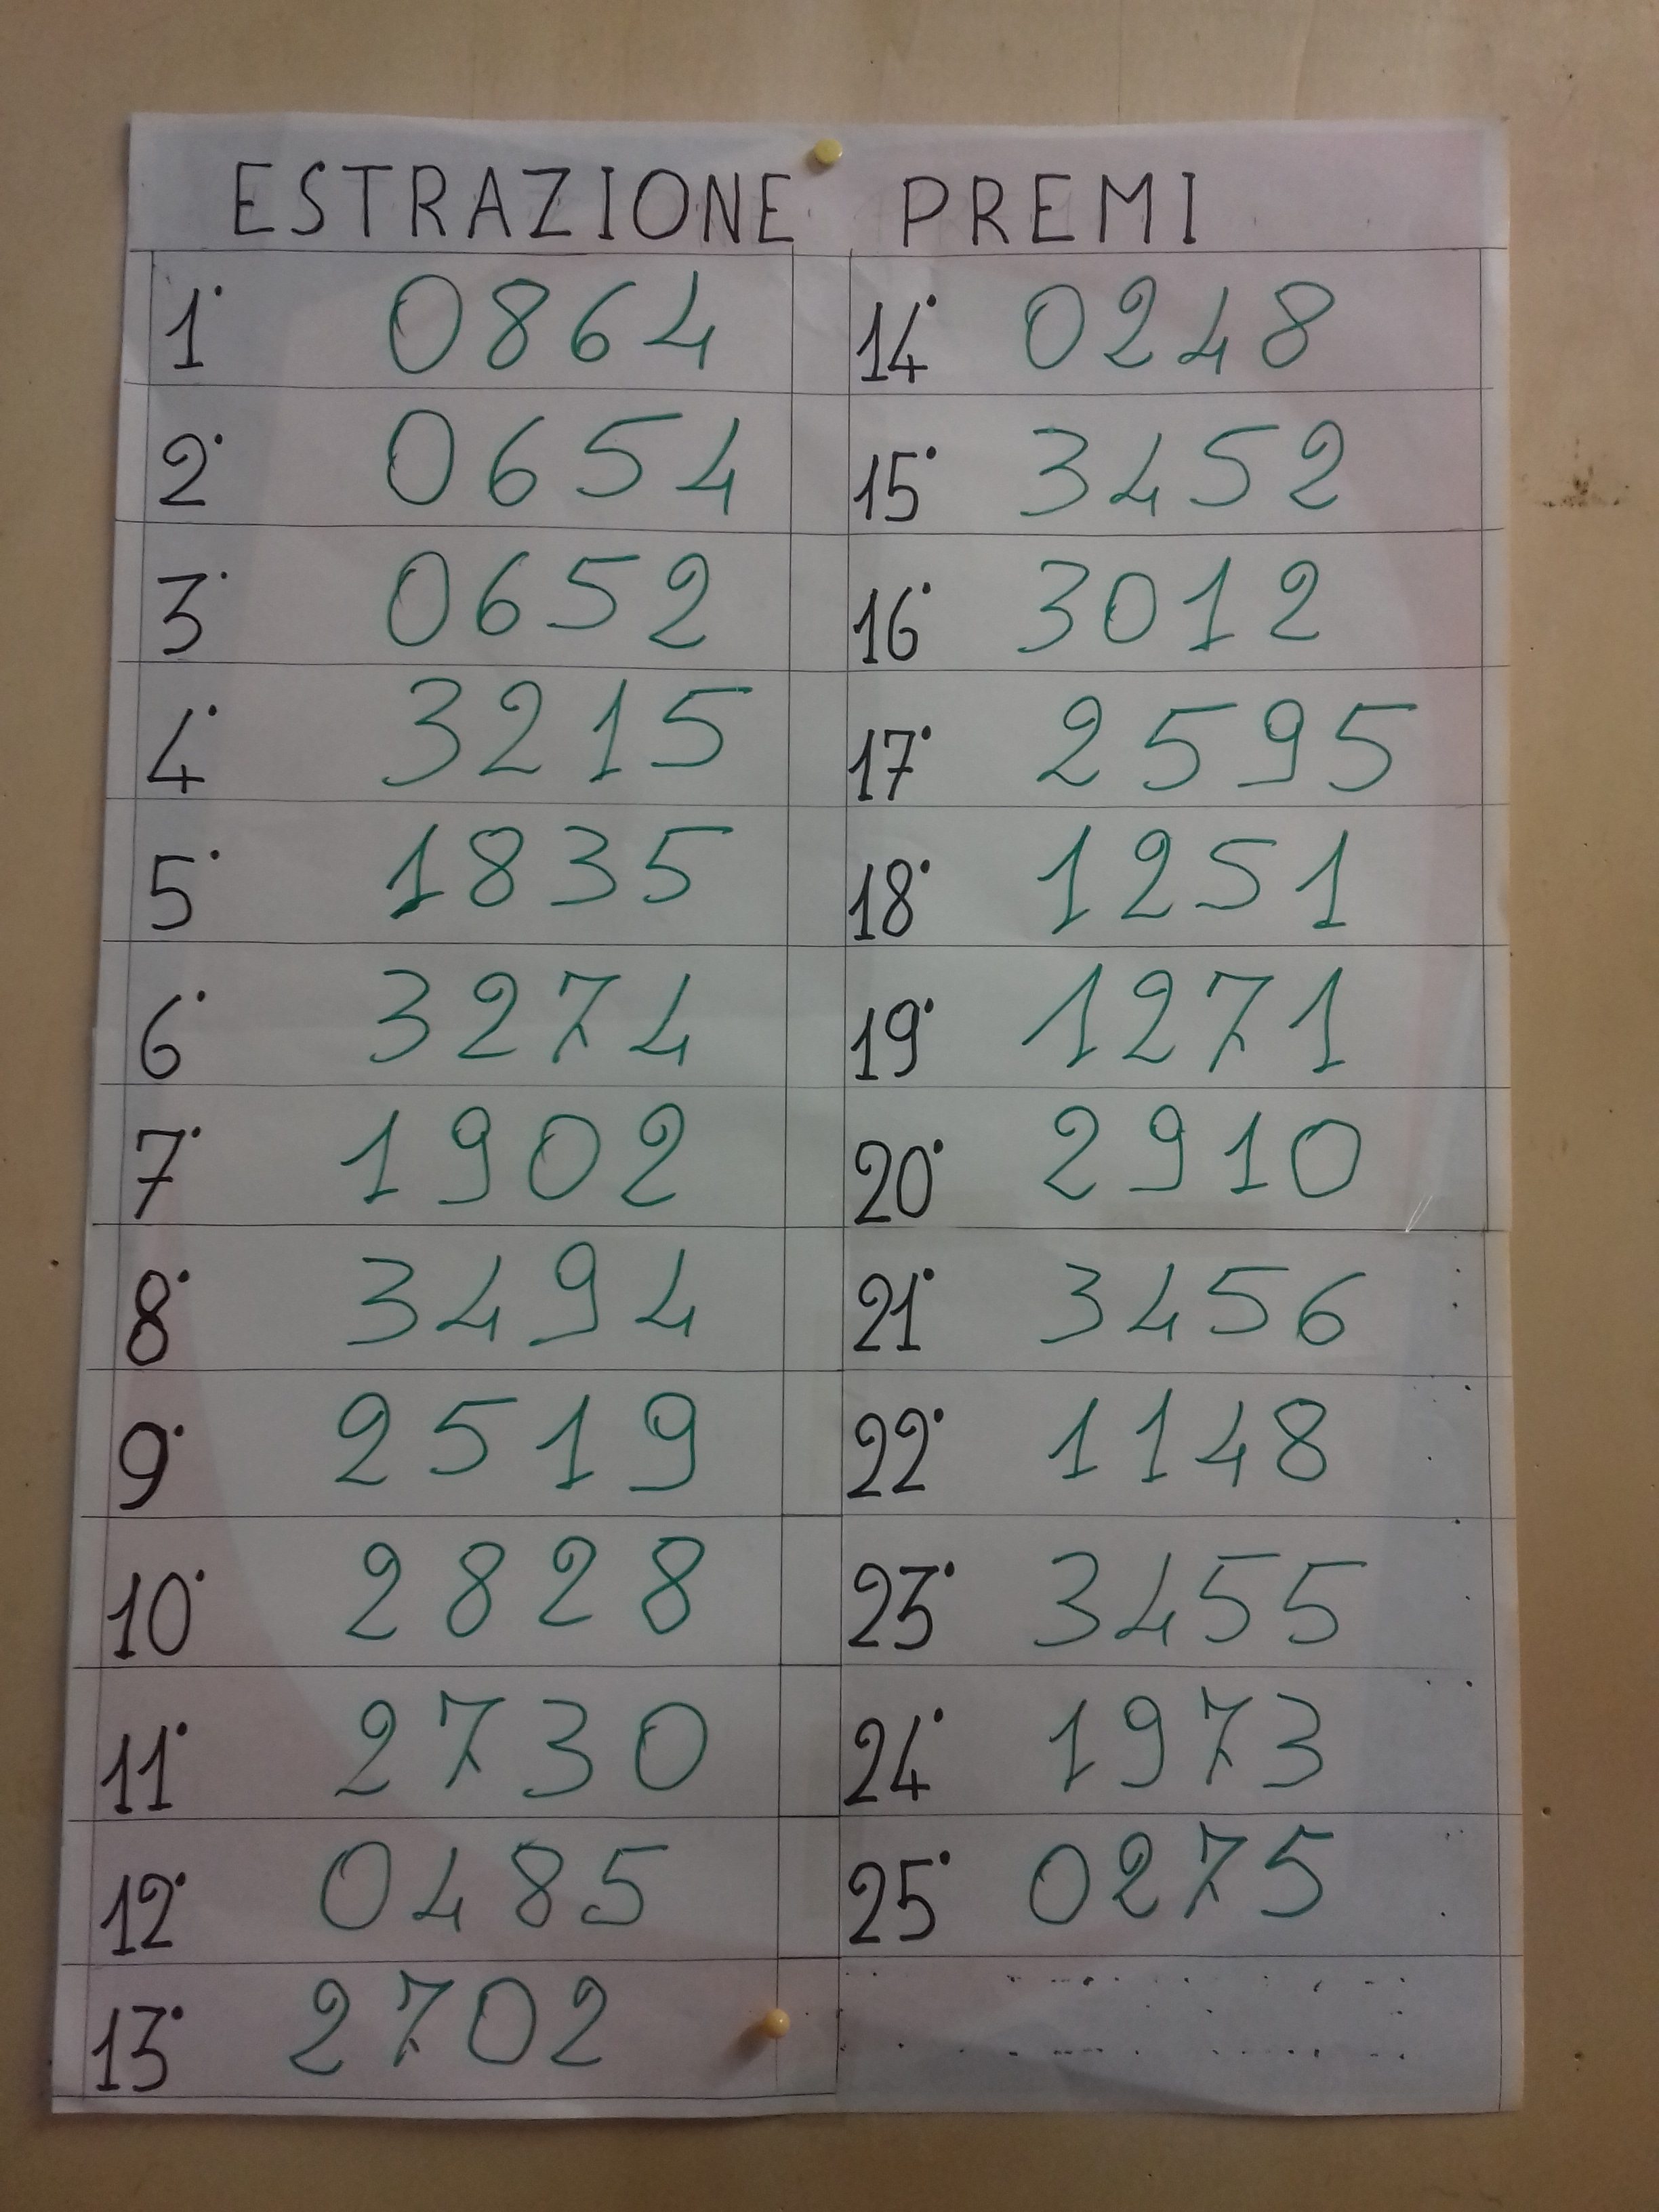 ESTRAZIONE PREMI
1° 0864
2° 0654
3° 0652
4° 3215
5° 1835
6° 3274
7° 1902
8° 3494
9° 2519
10° 2828
11° 2730
12° 0485
13° 2702
14° 0248
15° 3452
16° 3012
17° 2595
18° 1251
19° 1271
20° 2910
21° 3456
22° 1148
23° 3455
24° 1973
25° 0275